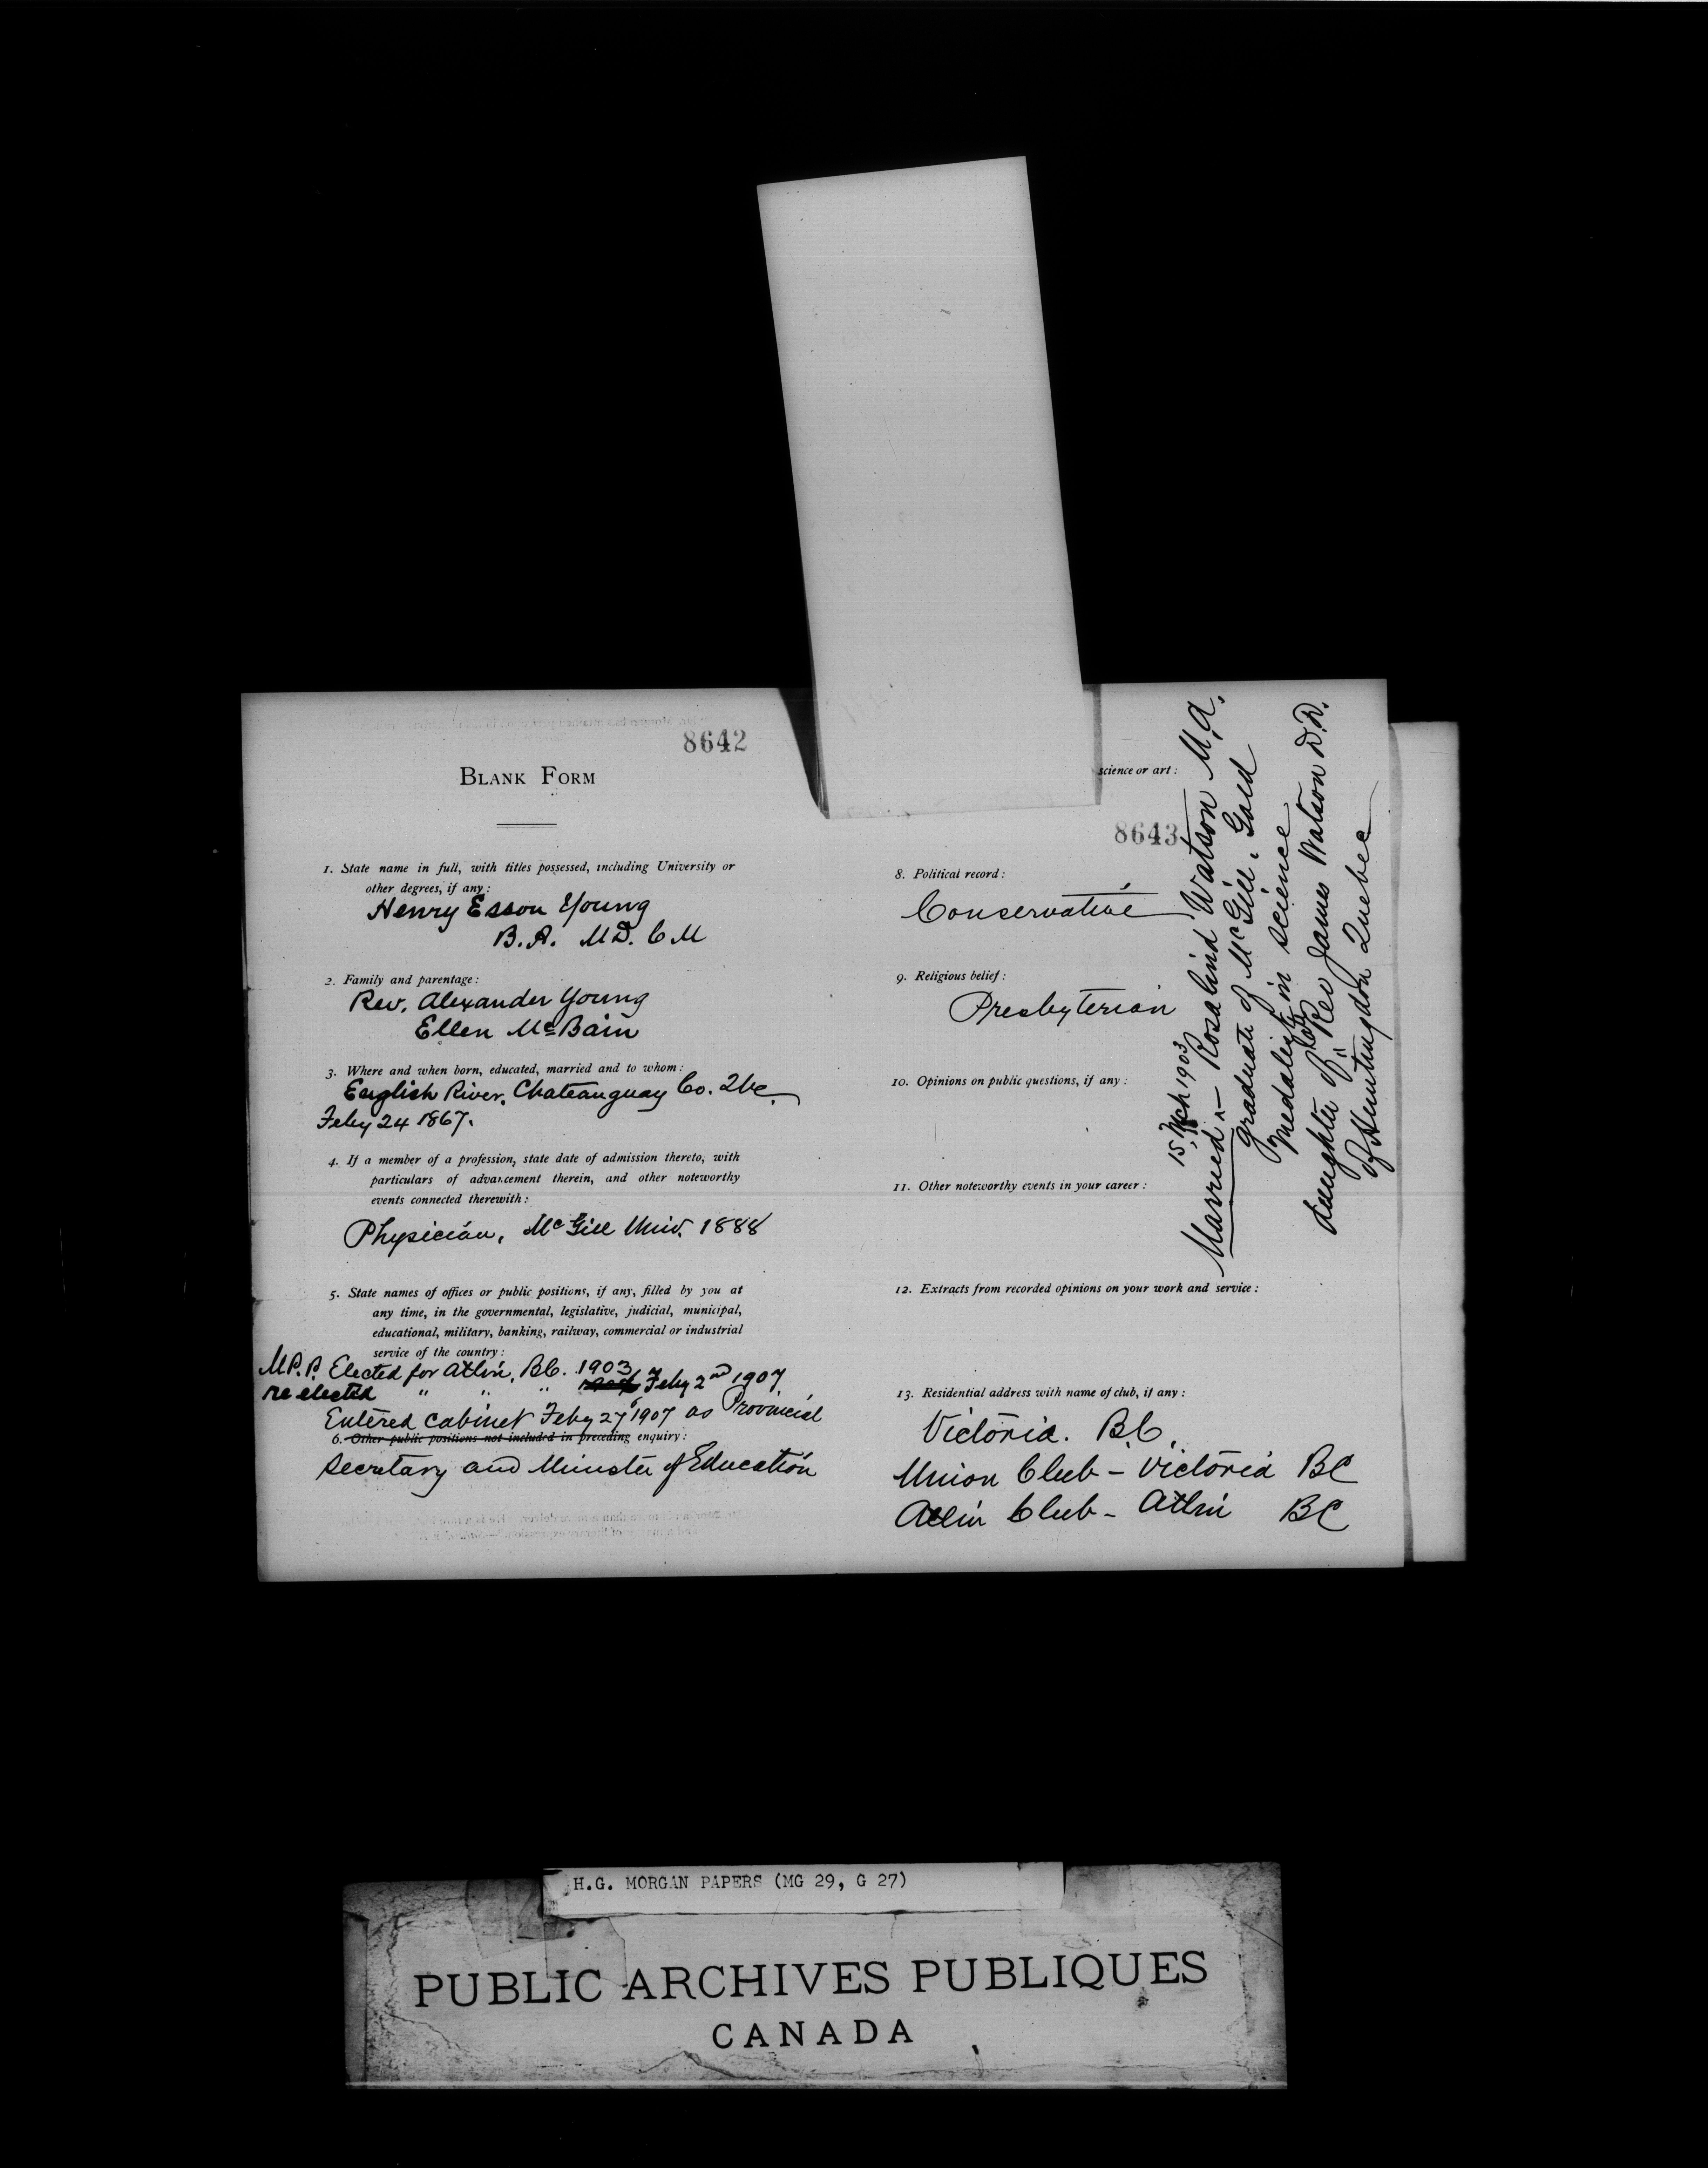 8642
BLANK FORM
1. State name in full, with titles possessed, including University or
other degrees, if any:
Henry Esson Young
B.A. M.D. C M
2. Family and parentage:
Rev. Alexander Young
Ellen McBain
3. Where and when born, educated, married and to whom:
English River, Chateauguay Co. Que.
Feby 24 1867.
4. If a member of a profession, state date of admission thereto, with
particulars of advancement therein, and other noteworthy
events connected therewith:
Physician, McGill Univ. 1888
5. State names of offices or public positions, if any, filled by you at
any time, in the governmental, legislative, judicial, municipal,
educational, military, banking, railway, commercial or industrial
service of the country:
M.P.P. Elected for Atlin, B.C. 1903
re elected " " " Feby 2nd 1907
Entered cabinet Feby 27 1907 as Provincial
6. Other public positions not included in preceding enquiry:
Secretary and Minister of Education
science or art:
8643
8. Political record:
Conservative
9. Religious belief:
Presbyterian
10. Opinions on public questions, if any:
11. Other noteworthy events in your career:
12. Extracts from recorded opinions on your work and service:
13. Residential address with name of club, if any:
Victoria. B.C.
Union Club - Victoria BC
Atlin Club - Atlin BC
15 Mch 1903
Married - Rosalind Watson M.A.
graduate of McGill. Gold
Medalist in science
daughter of Rev James Watson D.D.
of Huntingdon Quebec
H.G. MORGAN PAPERS (MG 29, G 27)
PUBLIC ARCHIVES PUBLIQUES
CANADA